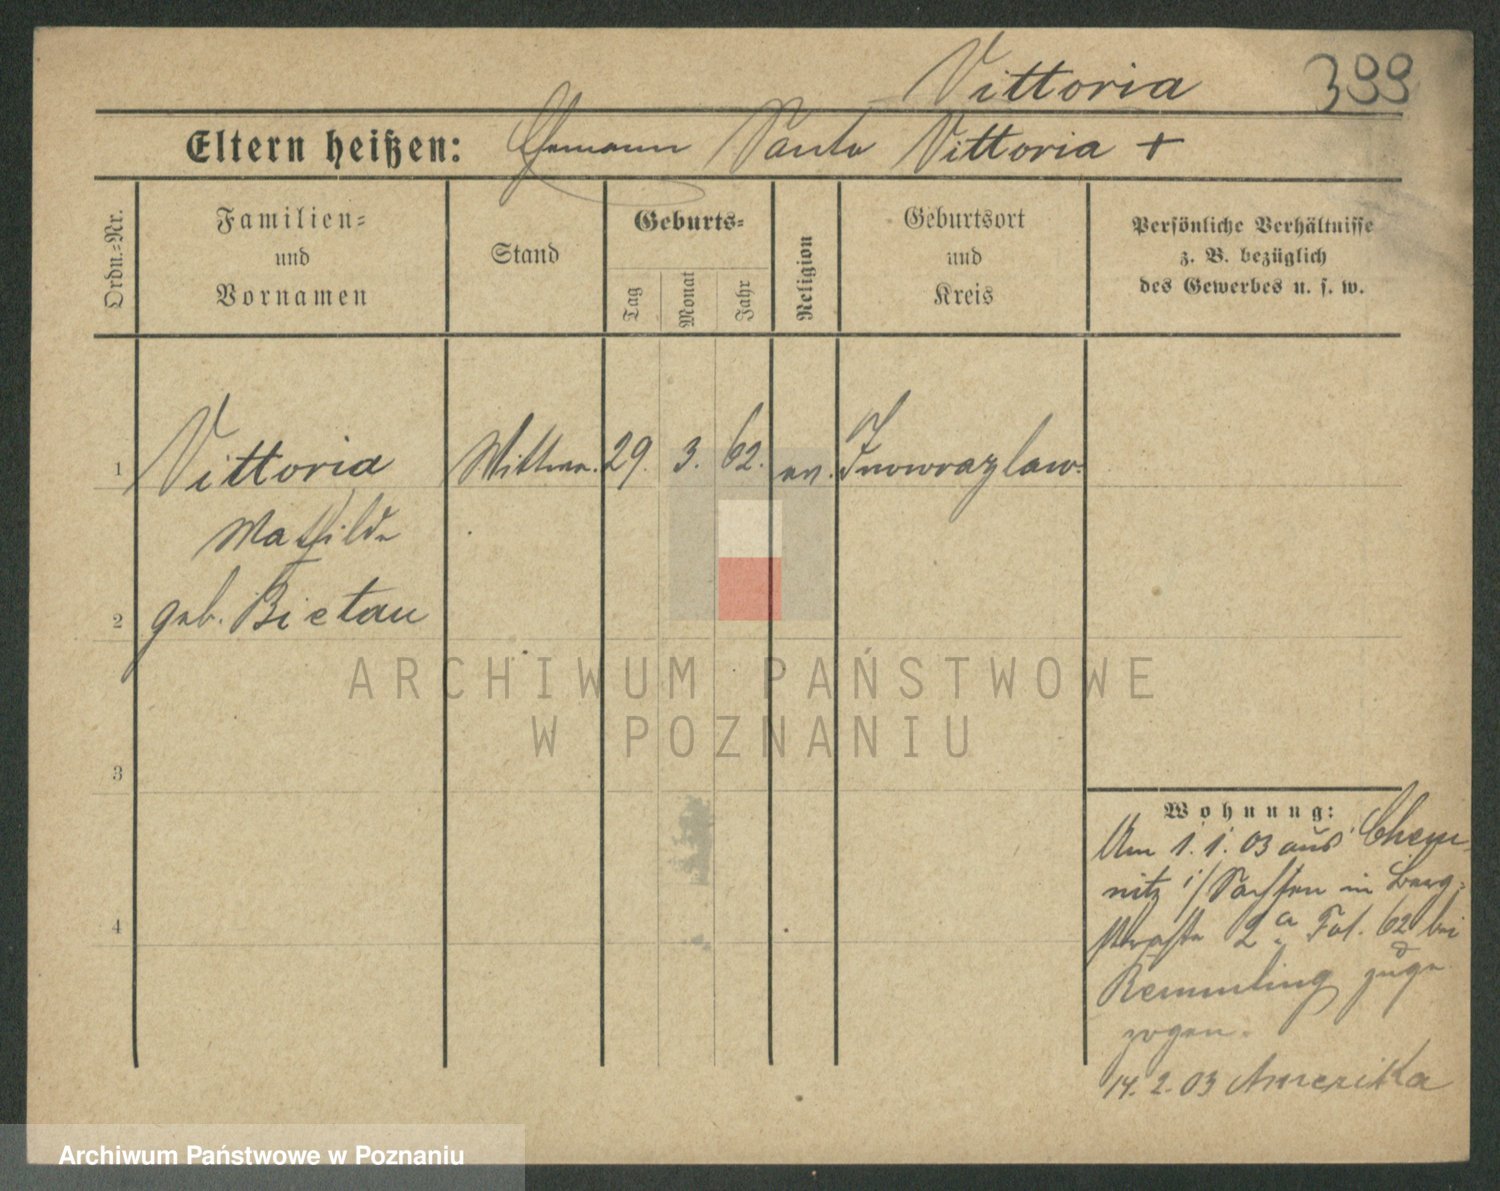 Vittoria 399
Eltern heißen: Ehemann Santo Vittoria +
Ordn.=Nr.
Familien=
und
Vornamen
Stand
Geburts=
Tag
Monat
Jahr
Religion
Geburtsort
und
Kreis
Persönliche Verhältnisse
z. B. bezüglich
des Gewerbes u. s. w.
1 Vittoria Wittwe. 29. 3. 62. ev. Inowrazlaw.
Mathilde
2 geb. Bietau
ARCHIWUM PAŃSTWOWE
W POZNANIU
3
4
Wohnung:
Am 1.1.03 aus Chem=
nitz i/Sachsen in Berg=
straße 2a Fol. 62 bei
Remmling zuge
zogen.
14.2.03 Amerika
Archiwum Państwowe w Poznaniu